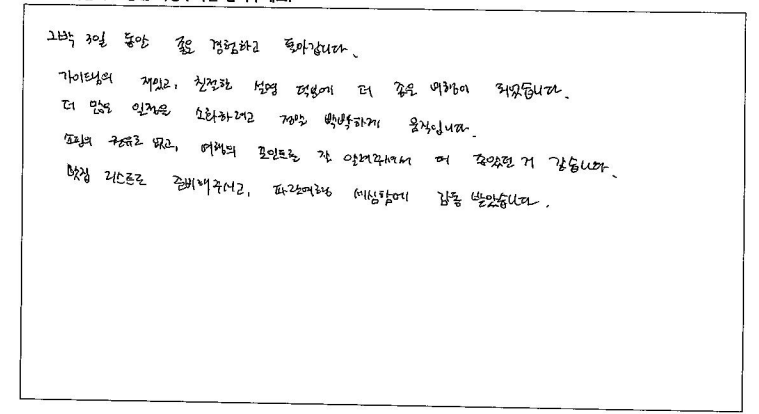 2박 3일 동안 좋은 경험하고 돌아갑니다.
가이드님의 재밌고, 친절한 설명 덕분에 더 좋은 여행이 되었습니다.
더 많은 일정을 소화하려고 정말 빡빡하게 움직입니다.
쇼핑의 강유로 없고, 여행의 포인트를 잘 알려주셔서 더 좋았던 거 같습니다.
맛집 리스트도 준비해주시고, 파란여행 세심함에 감동 받았습니다.